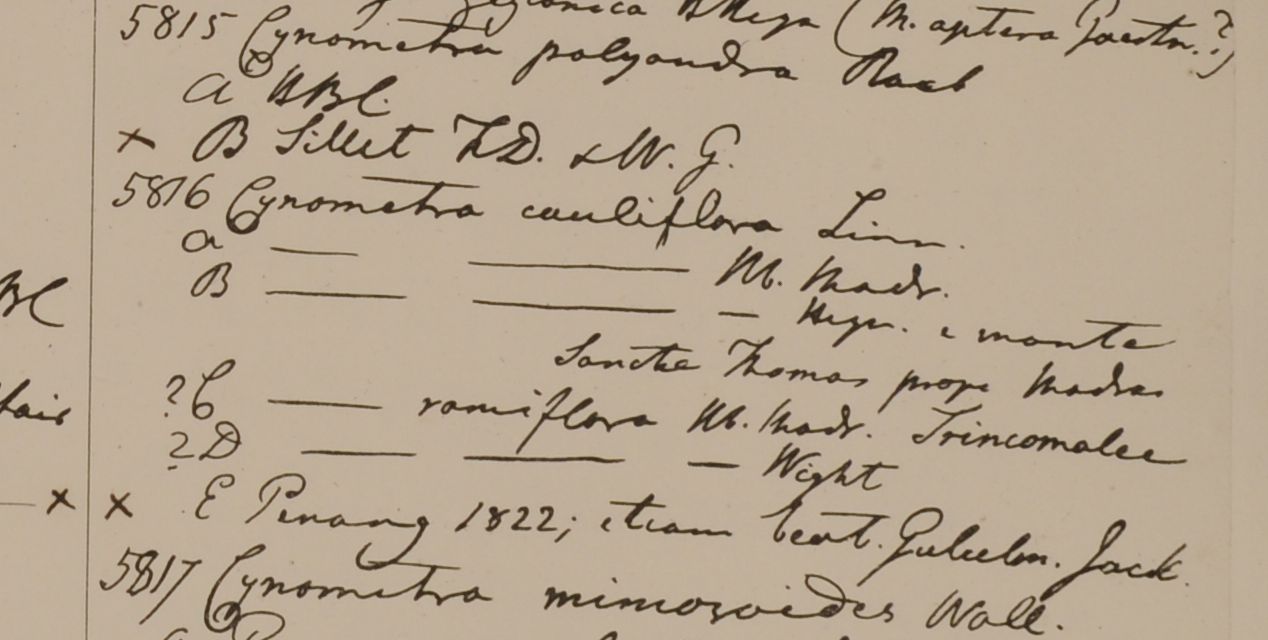 zeylonica Heyn (M. aptera Gaertn.?)
5815 Cynometra polyandra Roxb
a HBC.
× B Sillet F.D. & W. G.
5816 Cynometra cauliflora Linn.
a — — H. Madr.
B — — — Heyn. e monte
Sanctae Thomas prope Madras
?C — ramiflora H. Madr. Trincomalee
?D — — — Wight
× × E Penang 1822; etiam beat. Gulielm. Jack.
5817 Cynometra mimosoides Wall.